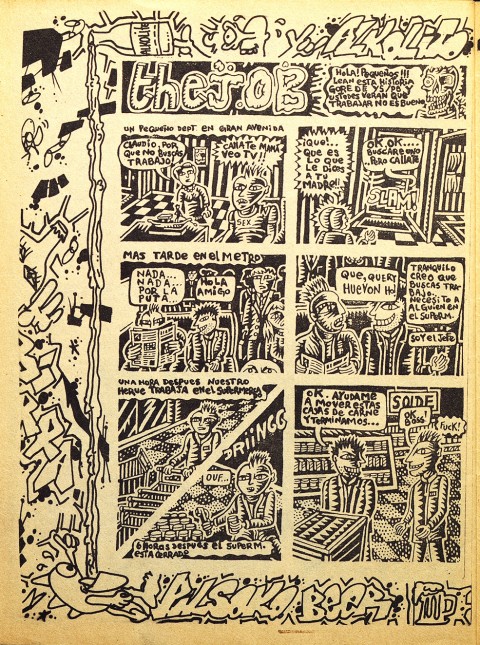 ALKOLIT
the J.OB
HOLA! PEQUEÑOS!!!
LEAN ESTA HISTORIA
GORE DE
USTEDES VERAN QUE
TRABAJAR NO ES BUENO
UN PEQUEÑO DEPT. EN GRAN AVENIDA
CLAUDIO, POR
QUE NO BUSCAS
TRABAJO
CALLATE MAMÁ
VEO TV!!
SEX
¡QUE!..
QUE ES
LO QUE
LE DICES
A TU
MADRE!!
OK, OK....
BUSCARE UNO
..PERO CALLATE
SLAM!
MAS TARDE EN EL METRO
NADA..
NADA..
POR LA
PUTA
HOLA
AMIGO
QUE, QUERÍ
HUEVON HO!
TRANQUILO
CREO QUE
BUSCAS TRA-
BAJO.
NECESITO A
ALGUIEN EN
EL SUPERM.
SOY EL JEFE
UNA HORA DESPUES NUESTRO
HEROE TRABAJA EN EL SUPERMERCA
DRIINGG
OUF...
6 HORAS DESPUES EL SUPERM.
ESTA CERRADO
OK, AYUDAME
A MOVER ESTAS
CAJAS DE CARNE
Y TERMINAMOS...
SOLDE
OK
BOSS
FUCK!
BEER